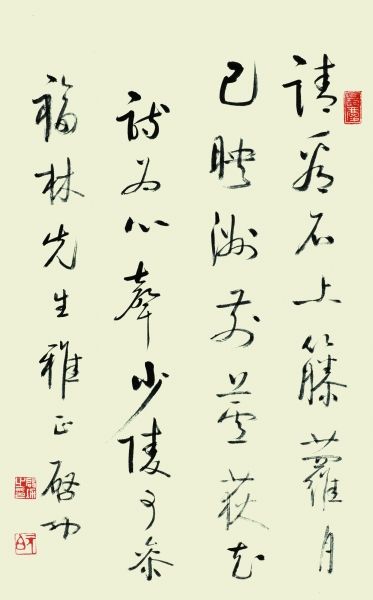 請看石上籐蘿月
已映洲前蘆荻花
詩为心聲少陵可參
福林先生雅正 啓功